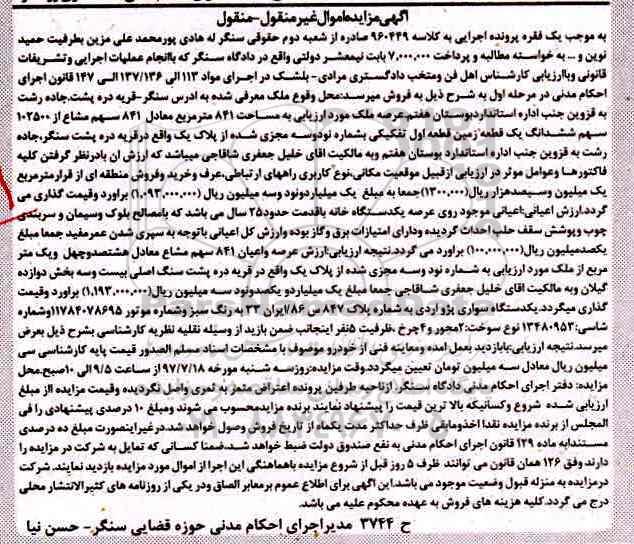 آگهی مزایده اموال غیر منقول - منقول
به موجب یک فقره پرونده اجرایی به کلاسه ۹۶۰۴۴۹ صادره از شعبه دوم حقوقی سنگر له هادی پورمحمد علی مزین بطرفیت حمید
نوین و ... به خواسته مطالبه و پرداخت ۷,۰۰۰,۰۰۰ بابت نیمعشر دولتی واقع در دادگاه سنگر که باانجام عملیات اجرایی وتشریفات
قانونی وباارزیابی کارشناس اهل فن ومنتخب دادگستری مرادی- بلشک در اجرای مواد ۱۱۳ الی ۱۳۷/۱۳۶ الی ۱۴۷ قانون اجرای
احکام مدنی در مرحله اول به شرح ذیل به فروش میرسد:محل وقوع ملک معرفی شده به ادرس سنگر-قریه دره پشت.جاده رشت
به قزوین جنب اداره استاندارد بوستان هفتم.عرصه ملک مورد ارزیابی به مساحت ۸۴۱ مترمربع معادل ۸۴۱ سهم مشاع از ۱۰۲۵۰۰
سهم ششدانگ یک قطعه زمین قطعه اول تفکیکی بشماره نودوسه مجزی شده از پلاک یک واقع درقریه دره پشت سنگر،جاده
رشت به قزوین جنب اداره استاندارد بوستان هفتم وبه مالکیت اقای خلیل جعفری شاقاجی میباشد که ارزش ان بادرنظر گرفتن کلیه
فاکتورها وعوامل موثر در ارزیابی ازقبیل موقعیت مکانی،نوع کاربری راههای ارتباطی،عرف وخرید وفروش منطقه ای از قرارمترمربع
یک میلیون وسیصدهزار ریال(۱۳۰۰۰۰۰)جمعا به مبلغ یک میلیاردونود وسه میلیون ریال (۱,۰۹۳,۰۰۰,۰۰۰) براورد وقیمت گذاری می
گردد.ارزش اعیانی:اعیانی موجود روی عرصه یکدستگاه خانه باقدمت حدود۲۵ سال می باشد که بامصالح بلوک وسیمان و سربندی
چوب وپوشش سقف حلب احداث گردیده ودارای امتیازات برق وگاز بوده وارزش کل اعیانی باتوجه به سپری شدن عمرمفید جمعا مبلغ
یکصدمیلیون ریال(۱۰۰,۰۰۰,۰۰۰) براورد می گردد.نتیجه ارزیابی:ارزش عرصه واعیان ۸۴۱ سهم مشاع معادل هشتصدوچهل ویک متر
مربع از ملک مورد ارزیابی به شماره نود وسه مجزی شده از پلاک یک واقع در قریه دره پشت سنگ اصلی بیست وسه بخش دوازده
گیلان وبه مالکیت اقای خلیل جعفری شاقاجی جمعا مبلغ یک میلیاردو یکصدونود سه میلیون ریال(۱,۱۹۳,۰۰۰,۰۰۰) براورد وقیمت
گذاری میگردد.یکدستگاه سواری پژو اردی به شماره پلاک ۸۴۷ س ۸۶/ایران ۳۳ به رنگ سبز وشماره موتور ۱۱۷۸۴۰۷۸۶۹۵وشماره
شاسی:۱۳۴۸۰۹۵۳ نوع سوخت:۲محور و۴چرخ ،ظرفیت ۵نفر اینجانب ضمن بازدید از وسیله نقلیه نظریه کارشناسی بشرح ذیل بعرض
میرسد.نتیجه ارزیابی:بابازدید بعمل امده ومعاینه فنی از خودرو موصوف با مشخصات اسناد مسلم الصدور قیمت پایه کارشناسی سی
میلیون ریال معادل سه میلیون تومان تعیین میگردد.وقت مزایده:روزسه شنبه مورخه ۹۷/۷/۱۸ از ساعت ۹/۵ الی ۱۰صبح.محل
مزایده: دفتر اجرای احکام مدنی دادگاه سنگر.ازناحیه طرفین پرونده اعتراض مثمر به ثمری واصل نگردیده وقیمت مزایده ااز مبلغ
ارزیابی شده شروع وکسانیکه بالا ترین قیمت را پیشنهاد نمایند برنده مزایده محسوب می شوند ومبلغ ۱۰ درصدی پیشنهادی را فی
المجلس از برنده مزایده نقدا اخذومابقی ظرف حداکثر مدت یکماه از تاریخ فروش وصول خواهد شد.درغیراینصورت مبلغ ده درصدی
مستندابه ماده ۱۲۹ قانون اجرای احکام مدنی به نفع صندوق دولت ضبط خواهد شد.ضمنا کسانی که تمایل به شرکت در مزایده را
دارند وفق ۱۲۶ همان قانون می توانند ظرف ۵ روز قبل از شروع مزایده باهماهنگی این اجرا از اموال مورد مزایده بازدید نمایند.شرکت
درمزایده به منزله قبول وضعیت موجود می باشد.این آگهی برای اطلاع عموم برمعابر الصاق ودر یکی از روزنامه های کثیرالانتشار محلی
درج می گردد.کلیه هزینه های فروش به عهده محکوم علیه می باشد.
ح ۳۷۴۴ مدیراجرای احکام مدنی حوزه قضایی سنگر- حسن نیا